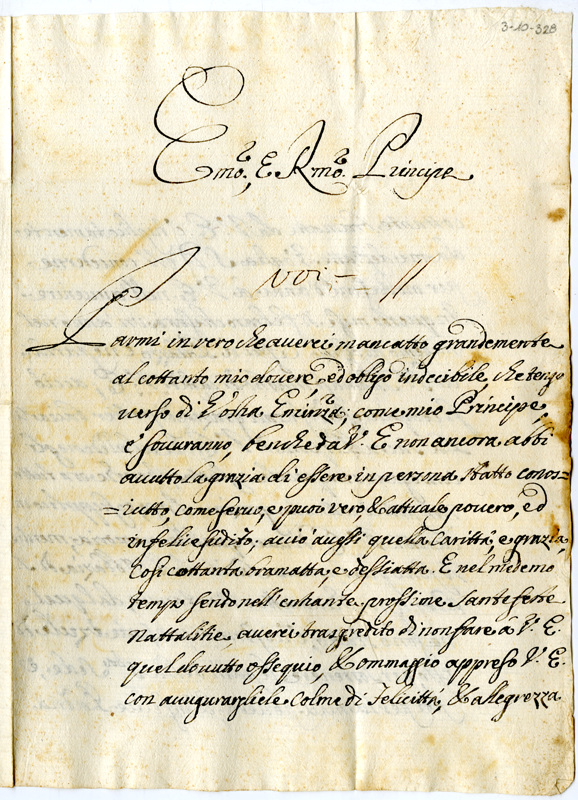 3-10-328
Emo, E Rmo. Principe
Parmi in vero che averei mancatto grandemente
al cottanto mio dovere, ed obligo indecibile, che tengo
verso di Vostra Eminza; come mio Principe,
e' sovuranno, benche da V. E non ancora abbi
avutto la grazia di essere in persona statto conos=
=iutto, come servo, e puoi vero, & attuale povero, ed
infelice sudito; acciò avessi quella carittà, e grazia,
Cosi cottanta bramatta, e dessiatta. E nel medemo
tempo sendo nell'enhante prossime Sante feste
Nattalitie, averei trasgredito di non fare à V. E.
quel dovutto ossequio, & ommaggio appreso V. E.
con avvgurargliele Colme di Felicittà, & allegrezza